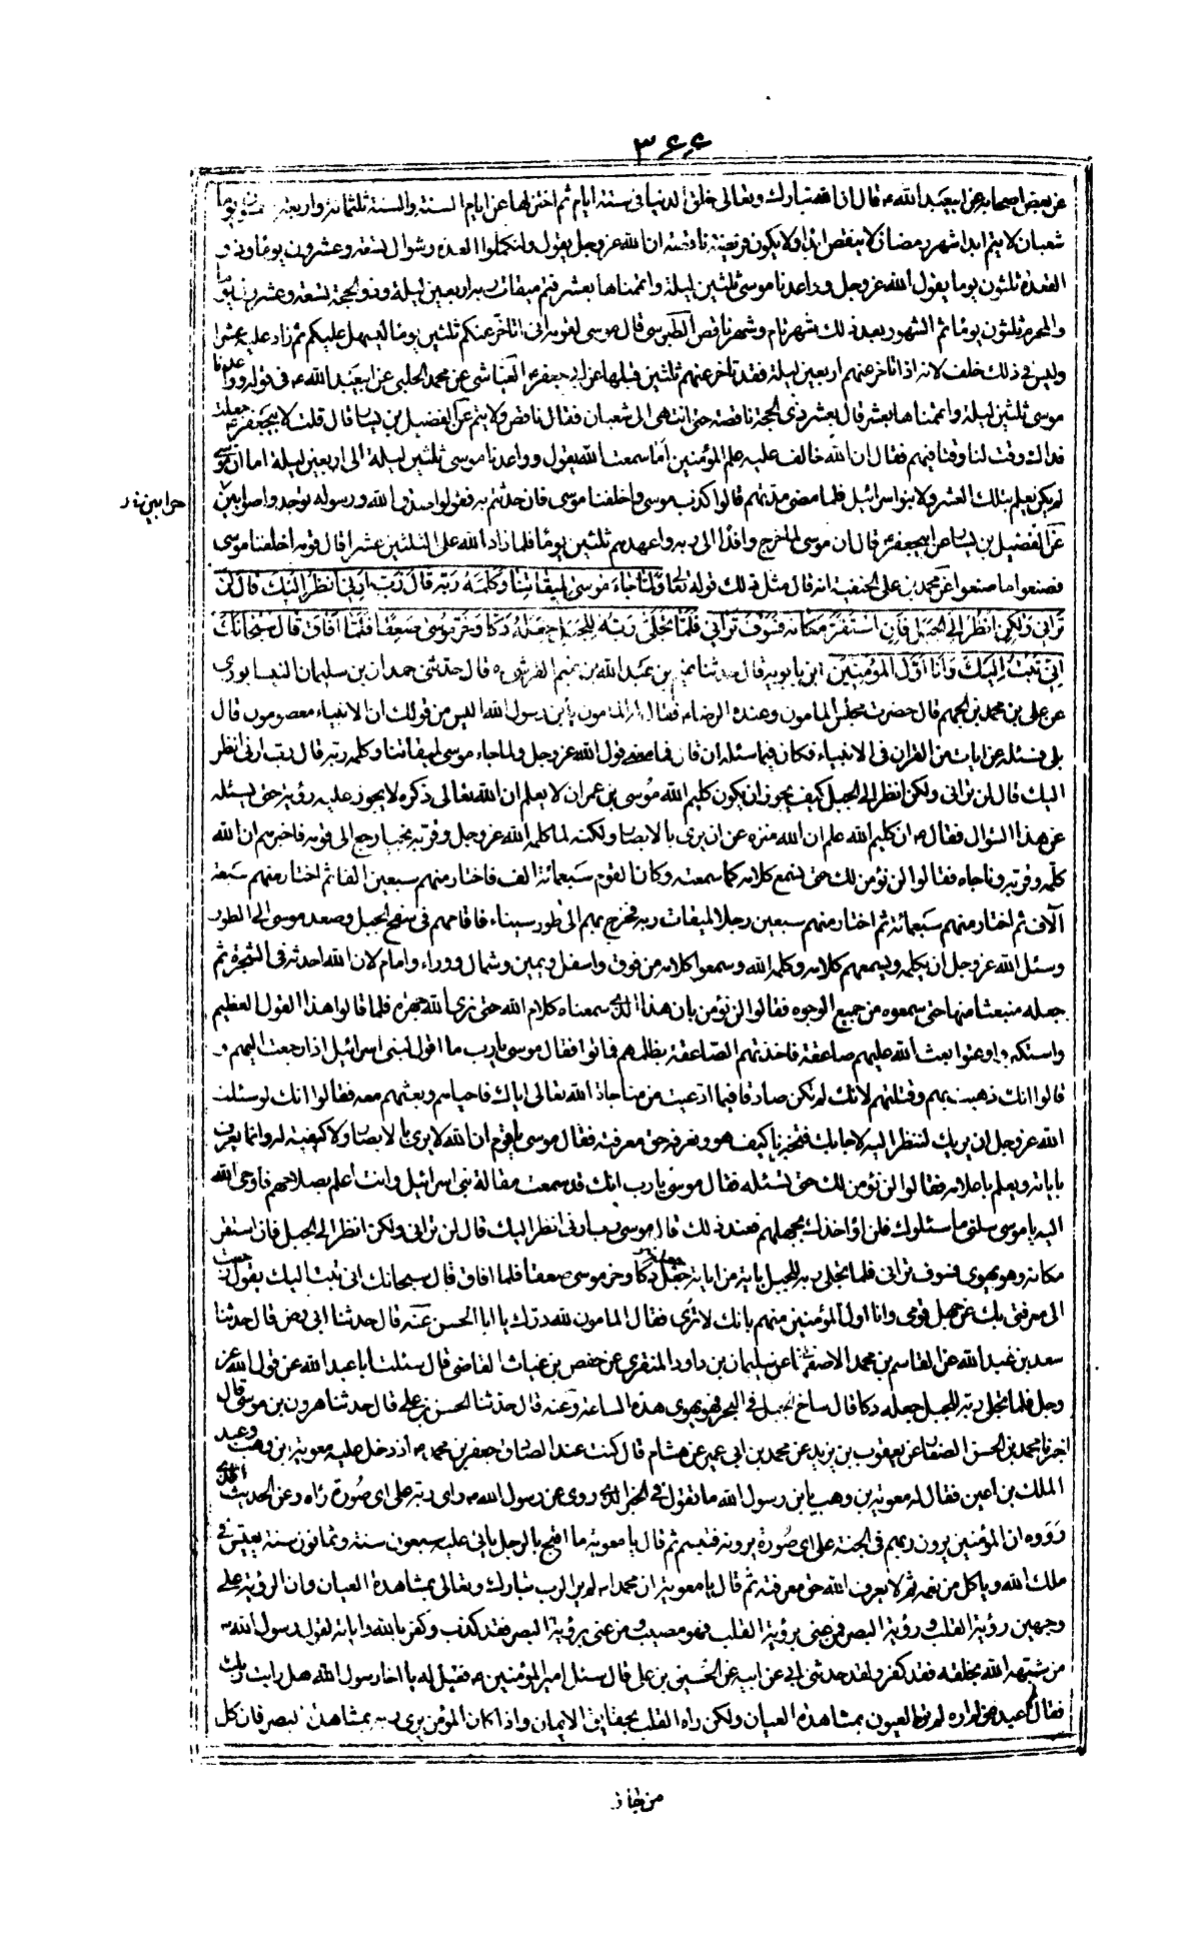 ٣٦٦
عن بعض اصحابه عن ابيعبد الله ع قال ان الله تبارك وتعالى خلق الدنيا في ستة ايام ثم اختزلها عن ايام السنة والسنة ثلثمائة واربعة وخمسون يوما
شعبان لا يتم ابدا شهر رمضان لا ينقص ابدا ولا يكون فريضة ناقصة ان الله عز وجل يقول ولتكملوا العدة وشوال تسعة وعشرون يوما وذو
القعدة ثلثون يوما يقول الله عز وجل وواعدنا موسى ثلثين ليلة واتممناها بعشر فتم ميقات ربه اربعين ليلة وذو الحجة تسعة وعشرون يوما
والمحرم ثلثون يوما ثم الشهور بعد ذلك شهر تام وشهر ناقص الطبرسي قال موسى لقومه اني اتاخر عنكم ثلثين يوما ليسهل عليكم ثم زاد عليه عشرا
وليس في ذلك خلف لانه اذا تاخر عنهم اربعين ليلة فقد تاخر عنهم ثلثين قبلها عن ابي جعفر ع العياشي عن محمد الحلبي عن ابيعبد الله ع في قوله وواعدنا
موسى ثلثين ليلة واتممناها بعشر قال بعشر ذي الحجة ناقصة حتى انتهى الى شعبان فقال ناقص ولا يتم عن الفضيل بن يسار قال قلت لابيجعفر ع جعلت
فداك وقت لنا وقتا فيهم فقال ان الله خالف علمه علم المؤقتين اما سمعت الله يقول وواعدنا موسى ثلثين ليلة الى اربعين ليلة اما ان موسى
لم يكن يعلم بتلك العشر ولا بنو اسرائيل فلما مضى مدتهم قالوا كذب موسى واخلفنا موسى فان حدثتم به فقولوا صدق الله ورسوله توجروا مرتين
عن الفضيل بن يسار عن ابيجعفر ع قال ان موسى لما خرج وافدا الى ربه واعدهم ثلثين يوما فلما زاد الله على الثلثين عشرا قال قومه اخلفنا موسى
فصنعوا ما صنعوا عن محمد بن علي الحنفية انه قال مثل ذلك قوله تعا وَلَمّا جاءَ مُوسى لِميقاتِنا وَكَلَّمَهُ رَبُّه قالَ رَبِّ اَرِني اَنظُر اِلَيكَ قالَ لَن
تَراني وَلكِنِ انْظُر اِلَى الجَبَلِ فَاِنِ اسْتَقَرَّ مَكانَه فَسَوْفَ تَراني فَلَمّا تَجَلّى رَبُّه لِلجَبَلِ جَعَلَهُ دَكّا وَخَرَّ مُوسى صَعِقا فَلَمّا اَفاقَ قالَ سُبحانَكَ
اِنّي تُبْتُ اِلَيكَ وَاَنا اَوَّلُ المُؤمِنينَ ابن بابويه قال حدثنا تميم بن عبد الله بن تميم القرشي ره قال حدثني حمدان بن سليمان النيسابوري
عن علي بن محمد بن الجهم قال حضرت مجلس المامون وعنده الرضا ع فقال له المامون يابن رسول الله اليس من قولك ان الانبياء معصومون قال
بلى فسئله عن ايات من القران في الانبياء فكان فيما سئله ان قال فما معنى قول الله عز وجل ولما جاء موسى لميقاتنا وكلمه ربه قال رب ارني انظر
اليك قال لن تراني ولكن انظر الى الجبل كيف يجوز ان يكون كليم الله موسى بن عمران لا يعلم ان الله تعالى ذكره لا يجوز عليه رؤيته حتى يسئله
عن هذا السؤال فقال ع ان كليم الله علم ان الله منزه عن ان يرى بالابصار ولكنه لما كلمه الله عز وجل وقربه نجيا رجع الى قومه فاخبرهم ان الله
كلمه وقربه وناجاه فقالوا لن نؤمن لك حتى نسمع كلامه كما سمعت وكان القوم سبعمائة الف فاختار منهم سبعين الفا ثم اختار منهم سبعة
آلاف ثم اختار منهم سبعمائة ثم اختار منهم سبعين رجلا لميقات ربه فخرج بهم الى طور سيناء فاقامهم في سفح الجبل وصعد موسى الى الطور
وسئل الله عز وجل ان يكلمه ويسمعهم كلامه وكلمه الله وسمعوا كلامه من فوق واسفل ويمين وشمال ووراء وامام لان الله احدثه في الشجرة ثم
جعله منبعثا منها حتى سمعوه من جميع الوجوه فقالوا لن نؤمن بان هذا الذي سمعناه كلام الله حتى نرى الله جهرة فلما قالوا هذا القول العظيم
واستكبروا وعتوا بعث الله عليهم صاعقة فاخذتهم الصاعقة بظلمهم فماتوا فقال موسى يا رب ما اقول لبني اسرائيل اذا رجعت اليهم و
قالوا انك ذهبت بهم وقتلتهم لانك لم تكن صادقا فيما ادعيت من مناجاة الله تعالى اياك فاحياهم وبعثهم معه فقالوا انك لو سئلت
الله عز وجل ان يريك لننظر اليه لاجابك فتخبرنا كيف هو ونعرفه حق معرفته فقال موسى يا قوم ان الله لا يرى بالابصار ولا كيفية له وانما يعرف
باياته ويعلم باعلامه فقالوا لن نؤمن لك حتى تسئله فقال موسى يا رب انك قد سمعت مقالة بني اسرائيل وانت اعلم بصلاحهم فاوحى الله
اليه يا موسى سلني ما سئلوك فلن اؤاخذك بجهلهم فعند ذلك قال موسى رب ارني انظر اليك قال لن تراني ولكن انظر الى الجبل فان استقر
مكانه وهو يهوي فسوف تراني فلما تجلى ربه للجبل باية من اياته جعله دكا وخر موسى صعقا فلما افاق قال سبحانك اني تبت اليك يقول رجعت
الى معرفتي بك عن جهل قومي وانا اول المؤمنين منهم بانك لا ترى فقال المامون لله درك يا ابا الحسن عنه قال حدثنا ابي رض قال حدثنا
سعد بن عبد الله عن القاسم بن محمد الاصفهانى عن سليمان بن داود المنقري عن حفص بن غياث القاضي قال سئلت ابا عبد الله عن قول الله عز
وجل فلما تجلى ربه للجبل جعله دكا قال ساخ الجبل في البحر فهو يهوي هذه الساعة وعنه قال حدثنا الحسن بن علي قال حدثنا هرون بن موسى قال
اخبرنا محمد بن الحسن الصفار عن يعقوب بن يزيد عن محمد بن ابي عمير عن هشام قال كنت عند الصادق جعفر بن محمد ع اذ دخل عليه معوية بن وهب وعبد
الملك بن اعين فقال له معوية بن وهب يابن رسول الله ما تقول في الخبر الذي روي عن رسول الله ص راى ربه على اي صورة رآه وعن الحديث الذي
رووه ان المؤمنين يرون ربهم في الجنة على اي صورة يرونه فتبسم ثم قال يا معوية ما اقبح بالرجل ياتي عليه سبعون سنة وثمانون سنة يعيش في
ملك الله وياكل من نعمه ثم لا يعرف الله حق معرفته ثم قال يا معوية ان محمدا ص لم ير الرب تبارك وتعالى بمشاهدة العيان وان الرؤية على
وجهين رؤية القلب ورؤية البصر فمن عنى برؤية القلب فهو مصيب ومن عنى برؤية البصر فقد كذب وكفر بالله واياته لقول رسول الله ص
من شبه الله بخلقه فقد كفر ولقد حدثني ابي عن ابيه عن الحسين بن علي قال سئل امير المؤمنين ع فقيل له يا اخا رسول الله هل رايت ربك
فقال لم اعبد من لم اره لم تره العيون بمشاهدة العيان ولكن راه القلب بحقايق الايمان واذا كان المؤمن يرى ربه بمشاهدة البصر فان كل
من جاز